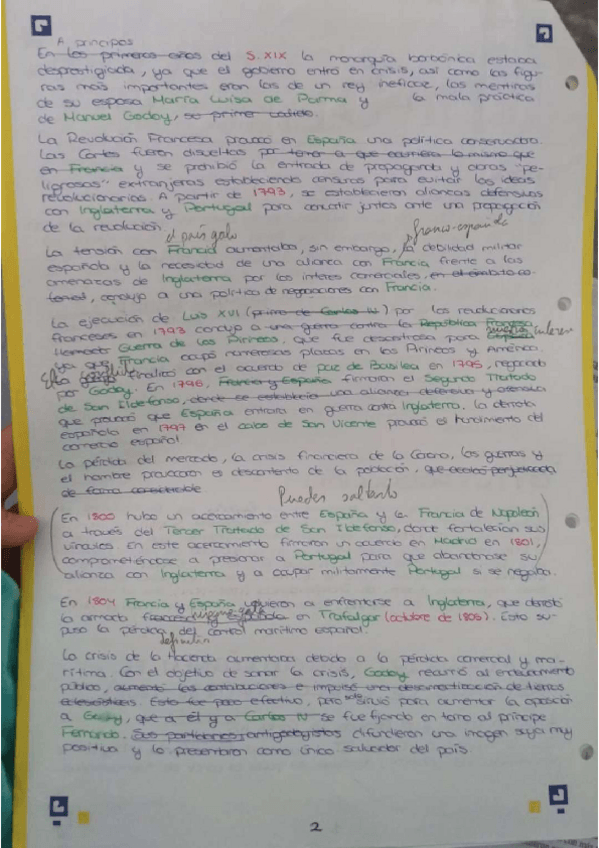 A principios
En los primeros años del S.XIX la monarquía borbónica estaba
desprestigiada, ya que el gobierno entró en crisis, así como las figu-
ras más importantes eran las de un rey ineficaz, las mentiras
de su esposa María Luisa de Parma y la mala práctica
de Manuel Godoy, su primer
La Revolución Francesa provocó en España una política conservadora.
Las Cortes fueron disueltas por temor a que ocurriera lo mismo que
en Francia y se prohibió la entrada de propaganda y obras "pe-
ligrosas" extranjeras estableciendo censuras para evitar las ideas
revolucionarias. A partir de 1793, se establecieron alianzas defensivas
con Inglaterra y Portugal para combatir juntos ante una propagación
de la revolución.
el país galo
franco-española
La tensión con Francia aumentaba, sin embargo, la debilidad militar
española y la necesidad de una alianza con Francia frente a las
amenazas de Inglaterra por los interes comerciales, en el ámbito co
lonial, condujo a una política de negociaciones con Francia.
La ejecución de Luis XVI (primo de Carlos IV) por los revolucionarios
franceses en 1793 condujo a una guerra contra la República Francesa
llamada Guerra de los Pirineos. Que fue desastrosa para España
ya que Francia ocupó numerosas plazas en los Pirineos y América.
finalizó con el acuerdo de paz de Basilea en 1795, negociado
por Godoy. En 1796, Francia y España firmaron el Segundo Tratado
de San Ildefonso, donde se establecía una alianza defensiva y ofensiva
que provocó que España entrara en guerra contra Inglaterra. La derrota
española en 1797 en el cabo de San Vicente provocó el hundimiento del
comercio español.
La pérdida del mercado, la crisis financiera de la Corona, las guerras y
el hambre provocaron el descontento de la población, que
de forma considerable
Puedes saltarlo
En 1800 hubo un acercamiento entre España y la Francia de Napoleón
a través del Tercer Tratado de San Ildefonso, donde fortalecían sus
vínculos. En este acercamiento firmaron un acuerdo en Madrid en 1801,
comprometiéndose a presionar a Portugal para que abandonase su
alianza con Inglaterra y a ocupar militarmente Portugal si se negaba.
En 1804 Francia y España volvieron a enfrentarse a Inglaterra, que derrotó
la armada en Trafalgar (octubre de 1805). Esto su-
puso la pérdida del control marítimo español.
La crisis de la Hacienda aumentaba debido a la pérdida comercial y ma-
rítima. Con el objetivo de sanar la crisis, Godoy recurrió al endeudamiento
público, aumentó las contribuciones e impulsó una desamortización de tierras
eclesiásticas. Esto fue poco efectivo, pero solo sirvió para aumentar la oposición
a Godoy, que a él y a Carlos IV se fue fijando en torno al príncipe
Fernando. Sus partidarios, antigodoyistas difundieron una imagen suya muy
positiva y lo presentaron como único salvador del país.
2